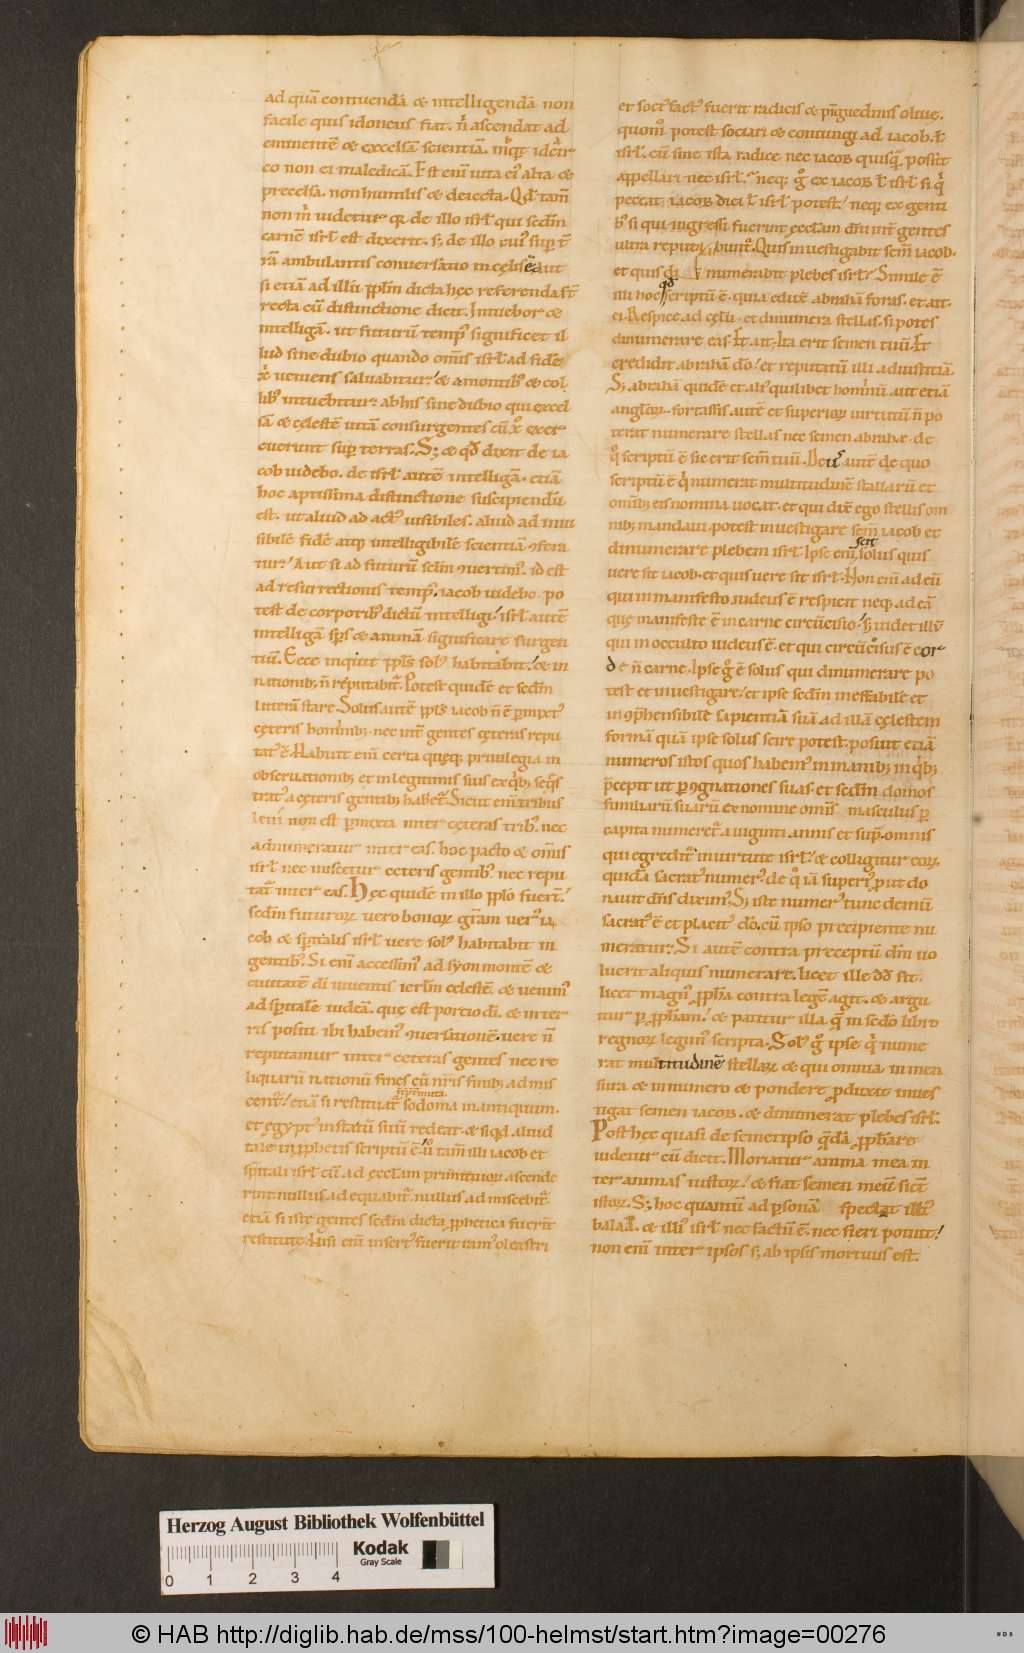 ad quā contuendā & intelligendā non
facile quis idoneus fiat. n̄ ascendat ad
eminentē & excelsā scientiā.
co non ei maledicā. Est enī uita ei' alta &
precelsa. non humilis & deiecta. Qd' tam̄
non m̄ uidetur q̄ de illo isrł qui sedm̄
carnē isrł est dixerit. s; de illo cui' sup t̄
rā ambulantis conuersatio in cęlis ē. aut
si etiā ad illū pplm̄ dicta hęc referenda st̄
recta cū distinctione dicit. Intuebor &
intelligā. ut futurū temp' significet il
lud sine dubio quando om̄is isrł ad fidē
xp̄i ueniens saluabitur. & a montib' & col
lib' intuebitur. ab his sine dubio qui excel
sā & cęlestē uitā consurgentes cū xp̄o exer
cuerunt sup terras. S; & qd' dixit de ia
cob uidebo. de isrł autē intelligā. etiā
hoc aptissima distinctione suscipiendū
est. ut aliud ad act' uisibiles. aliud ad inui
sibilē fidē atq; intelligibilē scientiā ɔfera
tur. Aut si ad futurū selm̄ ɔuertim'. id est
ad resurrectionis temp'. iacob uidebo. po
test de corporib' dictū intelligi. isrł autē
intelligā sp̄s & animā significare surgen
tiū. Ecce inquit ppls sol' habitabit. & in
nationib; n̄ reputabit'. Potest quidē et sedm̄
litterā stare. Solus autē ppls iacob n̄ ē pmixt'
cęteris hominib; nec int̄ gentes cęteras repu
tat' ē. Habuit enī certa quęq; priuilegia in
obseruationib; et in legitimis suis
trat' a cęteris gentib; habet'. Sicut enī tribus
leui non est pmixta inter cęteras trib'. nec
adnumeratur inter eas. hoc pacto & om̄is
isrł nec miscetur ceteris gentib'. nec repu
tat' inter eas. Hęc quidē in illo pplo fuert̄.
sedm̄ futuroꝝ uero bonoꝝ gr̄am uer' ia
cob & spitalis isrł uere sol' habitabit in
gentib'. Si enī accessim' ad syon montē &
ciuitatē dī uiuentis ierłm celestē. & uenim'
ad spitalē iudeā. que est portio dī. & inter
ris positi ibi habem' ɔuersationē. uere n̄
reputamur inter ceteras gentes nec re
liquarū nationū fines cū nr̄is finib; admis
cent'. etiā si restituat' sodoma in antiquum.
et ęgypt' in statū suū redeat. & siqd' aliud
tale in pphetis scriptū ē. tam̄ illi iacob et
spitali isrł cū ad ęcclam primitiuoꝝ ascende
rint. nullus adequabit'. nullus admiscebit'.
etiā si istę gentes sedm̄ dicta pphetica fuerint
restitutę. Nisi enī insert' fuerit ram' oleastri
et soci' fact' fuerit radicis & pinguedinis oliuę.
quom̊ potest sociari & coniungi ad iacob. ł
isrł. cū sine ista radice nec iacob quisq̄ possit
appellari nec isrł. neq; ex iacob ł isrł si q̄
peccat. iacob dici ł isrł potest. neq; ex genti
b' si qui ingressi fuerint ęcclam dn̄i int̄ gentes
ultra reputabunt'. Quis inuestigabit sem̄ iacob.
et quis dinumerabit plebes isrł? Simile ē
nu hoc qd' scriptū ē. quia eduxē abrahā foras. et ait
ei. Respice ad cęlū. et dinumera stellas. si potes
dinumerare eas. Et ait. Ita erit semen tuū. Et
credidit abrahā do. et reputatū illi ad iustitiā.
S; abrahā quidē et ali' quilibet hominū. aut etiā
angloꝝ. fortassis autē et superioꝝ uirtutū n̄ po
terat numerare stellas nec semen abrahæ. de
q̊ scriptū ē sic erit sem̄ tuū. De autē de quo
scriptū ē q̄ numerat multitudinē stellarū et
omib; eis nomina uocat. et qui dix' ego stellis om
nib; mandaui. potest inuestigare sem̄ iacob et
dinumerare plebem isrł. Ipse enī scit solus quis
uere sit iacob. et quis uere sit isrł. Non enī ad eū
qui in manifesto iudeus ē respicit neq; ad eā
quę manifestē ē in carne circūcisio. s; uidet illū
qui in occulto iudeus ē. et qui circūcisus ē cor
de n̄ carne. Ipse g̊ ē solus qui dinumerare po
test et inuestigare. et ipse sedm̄ ineffabile et
inɔphensibilē sapientiā suā ad illā cęlestem
formā quā ipse solus scire potest. posuit etiā
numeros istos quos habem' in manib; in q̄b;
p̄cepit ut p ɔgnationes suas. et sedm̄ domos
familiarū suarū ex nomine omis masculus p
capita numeret' a uiginti annis et sup'. omnis
qui egredit' in uirtute isrł. & colligitur eoꝝ
quidā sacrat' numer'. de q̊ iā superi' put do
nauit dn̄s dixim'. S; iste numer' tunc demū
sacrat' ē et placit' do. cū ipso precipiente nu
meratur. Si autē contra preceptū dn̄i uo
luerit aliquis numerare. licet ille dd' sit.
licet magn' ppha contra legē agit. & argu
itur p ppham. & patitur illa q̄ in sedo libro
regnoꝝ legim' scripta. Sol' g̊ ipse q̄ nume
rat multitudinē stellaꝝ & qui omnia in men
sura & in numero & pondere pduxit inues
tigat semen iacob. & dinumerat plebes isrł.
Post hęc quasi de semetipso q̄dā pphare
uidetur cū dicit. Moriatur anima mea in
ter animas iustoꝝ. & fiat semen meū sicut
istoꝝ. S; hoc quantū ad psonā spectat illi'
balaā. & illi' isrł nec factū ē. nec fieri potuit.
non enī inter ipsos s; ab ipsis mortuus est.
Herzog August Bibliothek Wolfenbüttel
Kodak
Gray Scale
0 1 2 3 4
© HAB http://diglib.hab.de/mss/100-helmst/start.htm?image=00276